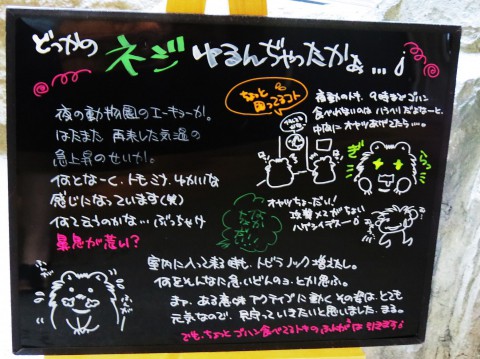 どっかの ネジ ゆるんぢゃったかぁ…
夜の動物園のエーキョーか。
はたまた 再来した気温の
急上昇のせいか。
何となーく、トモミナ、ゆかいな
感じになっています(笑)
何て言うのかな… ぶっちゃけ
暴君が荒い?
ちょっと
困ってるコト
夜動のトキ、9時までゴハン
食べれないのはハラペリだよなーと、
中向にオヤツあげてたら…
ぎ
オヤツちょーだい!
攻撃メスがちょい
ハゲシイデスー
室内に入って来る時も、トビラノック増えたし。
何をそんなに急いどんのョ、とか思ふ。
ま、ある意味アクティブに動くその姿は、とても
元気なので、見守っていきたいと思いました。まる。
でも、ちょっとゴハン食べてるトキの